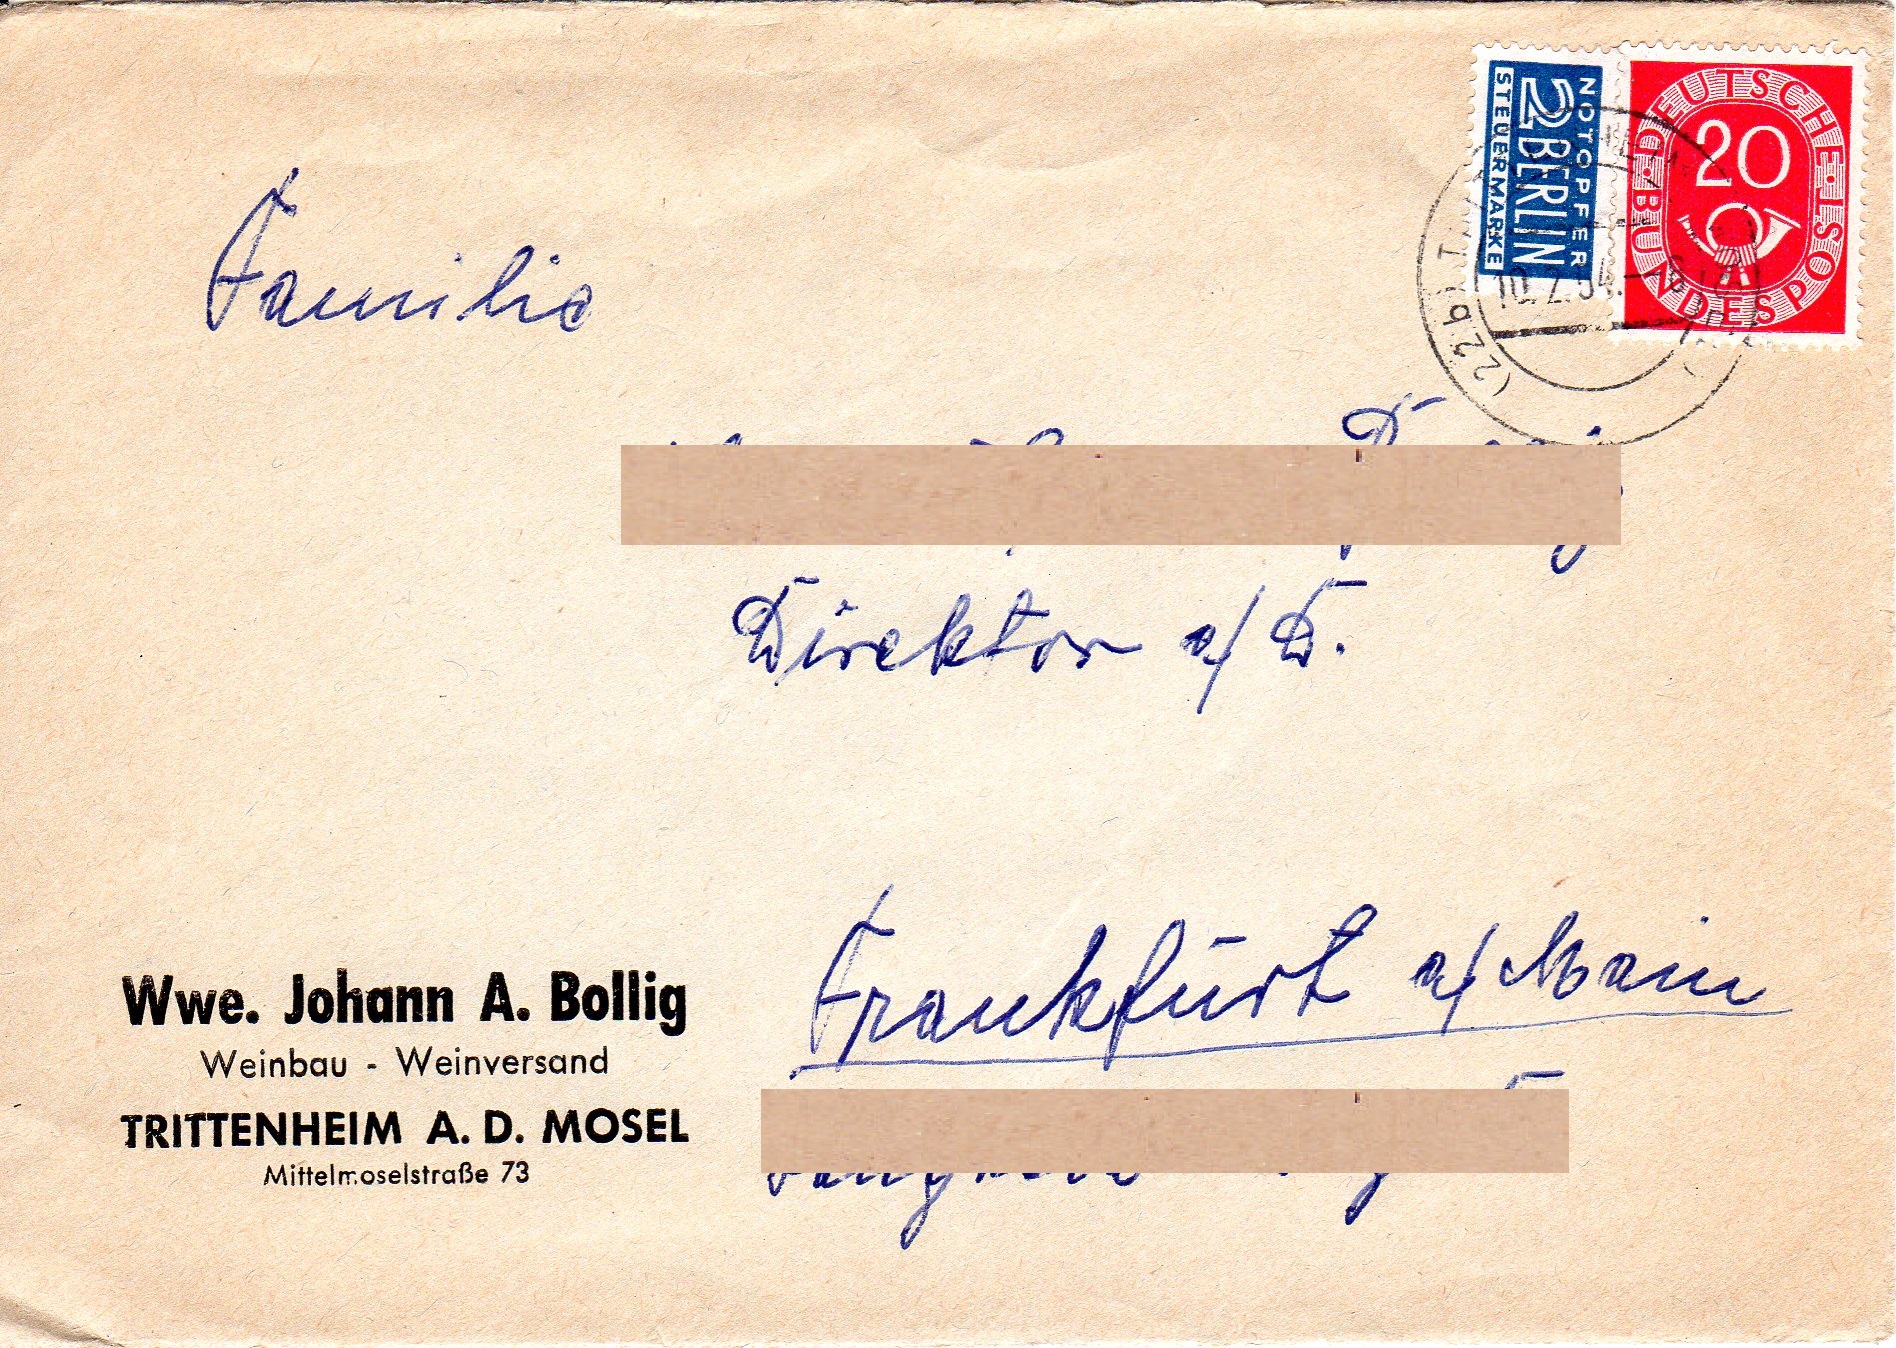 NOTOPFER
2 BERLIN
STEUERMARKE
DEUTSCHE BUNDESPOST
20
(22b) 
10.2.54.
Familie
Direktor a/D.
Frankfurt a/Main
Wwe. Johann A. Bollig
Weinbau - Weinversand
TRITTENHEIM A. D. MOSEL
Mittelmoselstraße 73